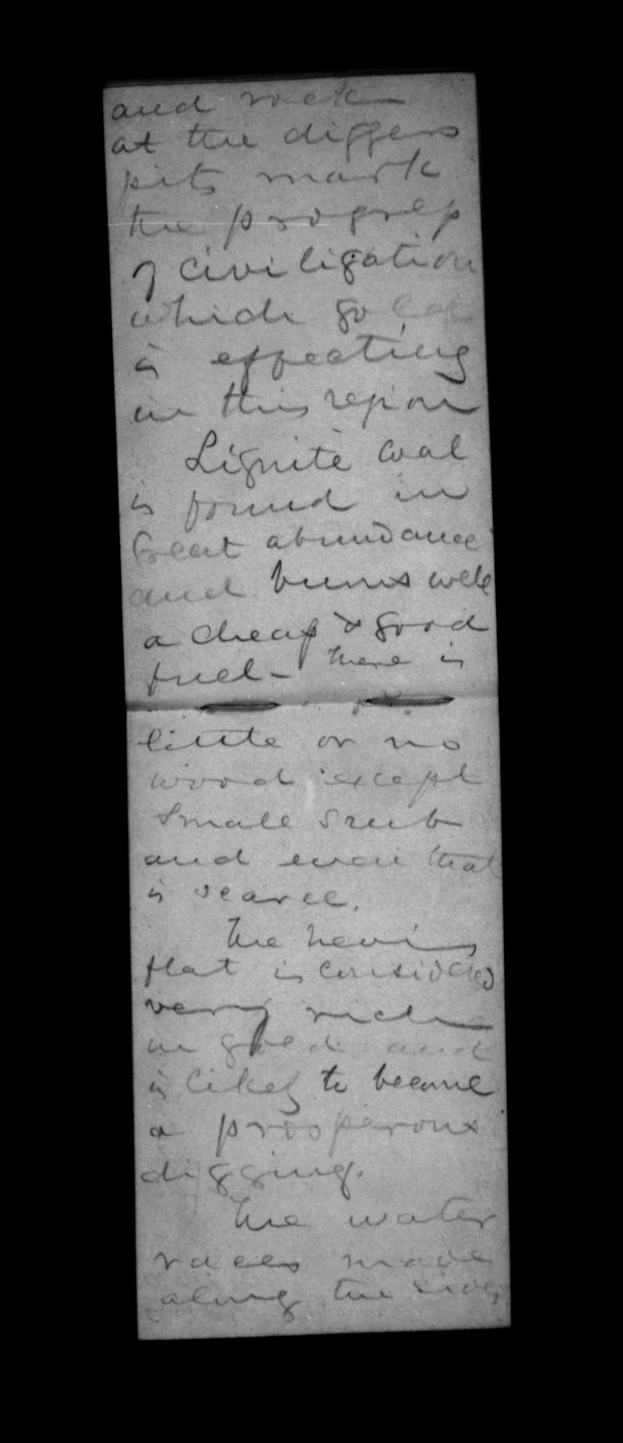 and rock
at the diggers
pits mark
the progress
of civilization
which gold
is effecting
in this region
Lignite coal
is found in
Great abundance
and burns well
a cheap & good
fuel - There is
little or no
wood except
small scrub
and even that
is scarce.
The
flat is considered
very rich
in gold and
is likely to become
a prosperous
digging.
The water
races made
along the side